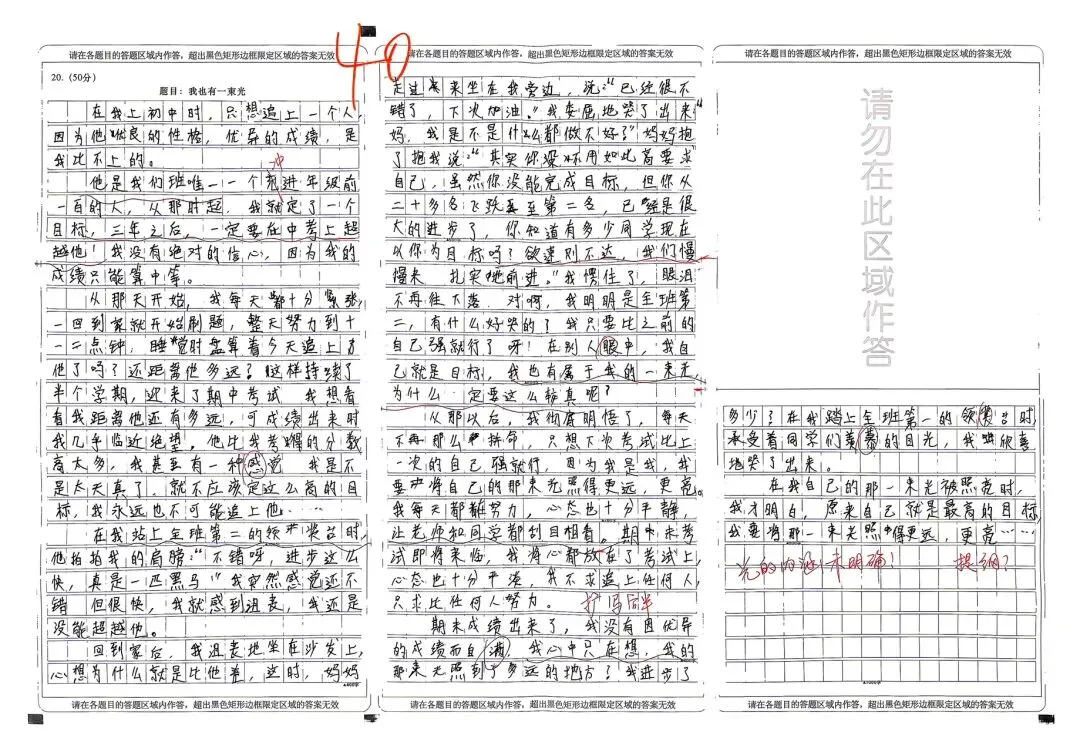 请在各题目的答题区域内作答，超出黑色矩形边框限定区域的答案无效
40
20.（50分）
题目：我也有一束光
在我上初中时，只想追上一个人，
因为他优良的性格，优异的成绩，是
我比不上的。
冲
他是我们班唯一一个进年级前
一百的人，从那时起，我就定了一个
目标，三年之后，一定要在中考上超
越他！我没有绝对的信心，因为我的
成绩只能算中等。
从那天开始，我每天都十分紧张，
一回到家就开始刷题，整天努力到十
一二点钟，睡觉时盘算着今天追上了
他了吗？还距离他多远？这样持续了
半个学期，迎来了期中考试 我想看
看我距离他还有多远，可成绩出来时
我几乎临近绝望，他比我考的分数
高太多，我甚至有一种感觉 我是不
是太天真了，就不应该定这么高的目
标，我永远也不可能追上他……
在我站上全班第二的领奖台时，
他拍拍我的肩膀：“不错呀，进步这么
快，真是一匹黑马”我突然感觉还不
错 但很快，我就感到沮丧，我还是
没能超越他。
回到家后，我沮丧地坐在沙发上，
心想为什么就是比他差，这时，妈妈
请在各题目的答题区域内作答，超出黑色矩形边框限定区域的答案无效
请在各题目的答题区域内作答，超出黑色矩形边框限定区域的答案无效
走过来坐在我旁边，说：“已经很不
错了，下次加油。”我委屈地哭了出来“
妈，我是不是什么都做不好”妈妈抱
了抱我说：“其实你不用如此高要求
自己，虽然你没能完成目标，但你从
二十多名飞跃至第二名，已经是很
大的进步了，你知道有多少同学现在
以你为目标吗？欲速则不达，我们慢
慢来 扎实地前进。”我愣住了，眼泪
不再往下落 对啊，我明明是全班第
二，有什么好哭的？我只要比之前的
自己强就行了呀！在别人眼中，我自
己就是目标，我也有属于我的一束光，
为什么一定要这么较真呢？
从那以后，我彻底明悟了，每天
不再那么拼命，只想下次考试比上
一次的自己强就行，因为我是我，我
要将自己的那束光照得更远，更亮。
我每天都在努力，心态也十分平静，
让老师和同学都刮目相看。期末考
试即将来临，我将心都放在了考试上，
心态也十分平淡，我不求追上任何人，
只求比任何人努力。
期末成绩出来了，我没有因优异
的成绩而自满 我心中只在想，我的
那束光照到了多远的地方？我进步了
请在各题目的答题区域内作答，超出黑色矩形边框限定区域的答案无效
请在各题目的答题区域内作答，超出黑色矩形边框限定区域的答案无效
请勿在此区域作答
多少？在我踏上全班第一的领奖台时
承受着同学们羡慕的目光，我欣喜
地哭了出来。
在我自己的那一束光被照亮时，
我才明白，原来自己就是最高的目标，
我要将那一束光照得更远，更亮……
光的内涵未明确！
提纲？
请在各题目的答题区域内作答，超出黑色矩形边框限定区域的答案无效